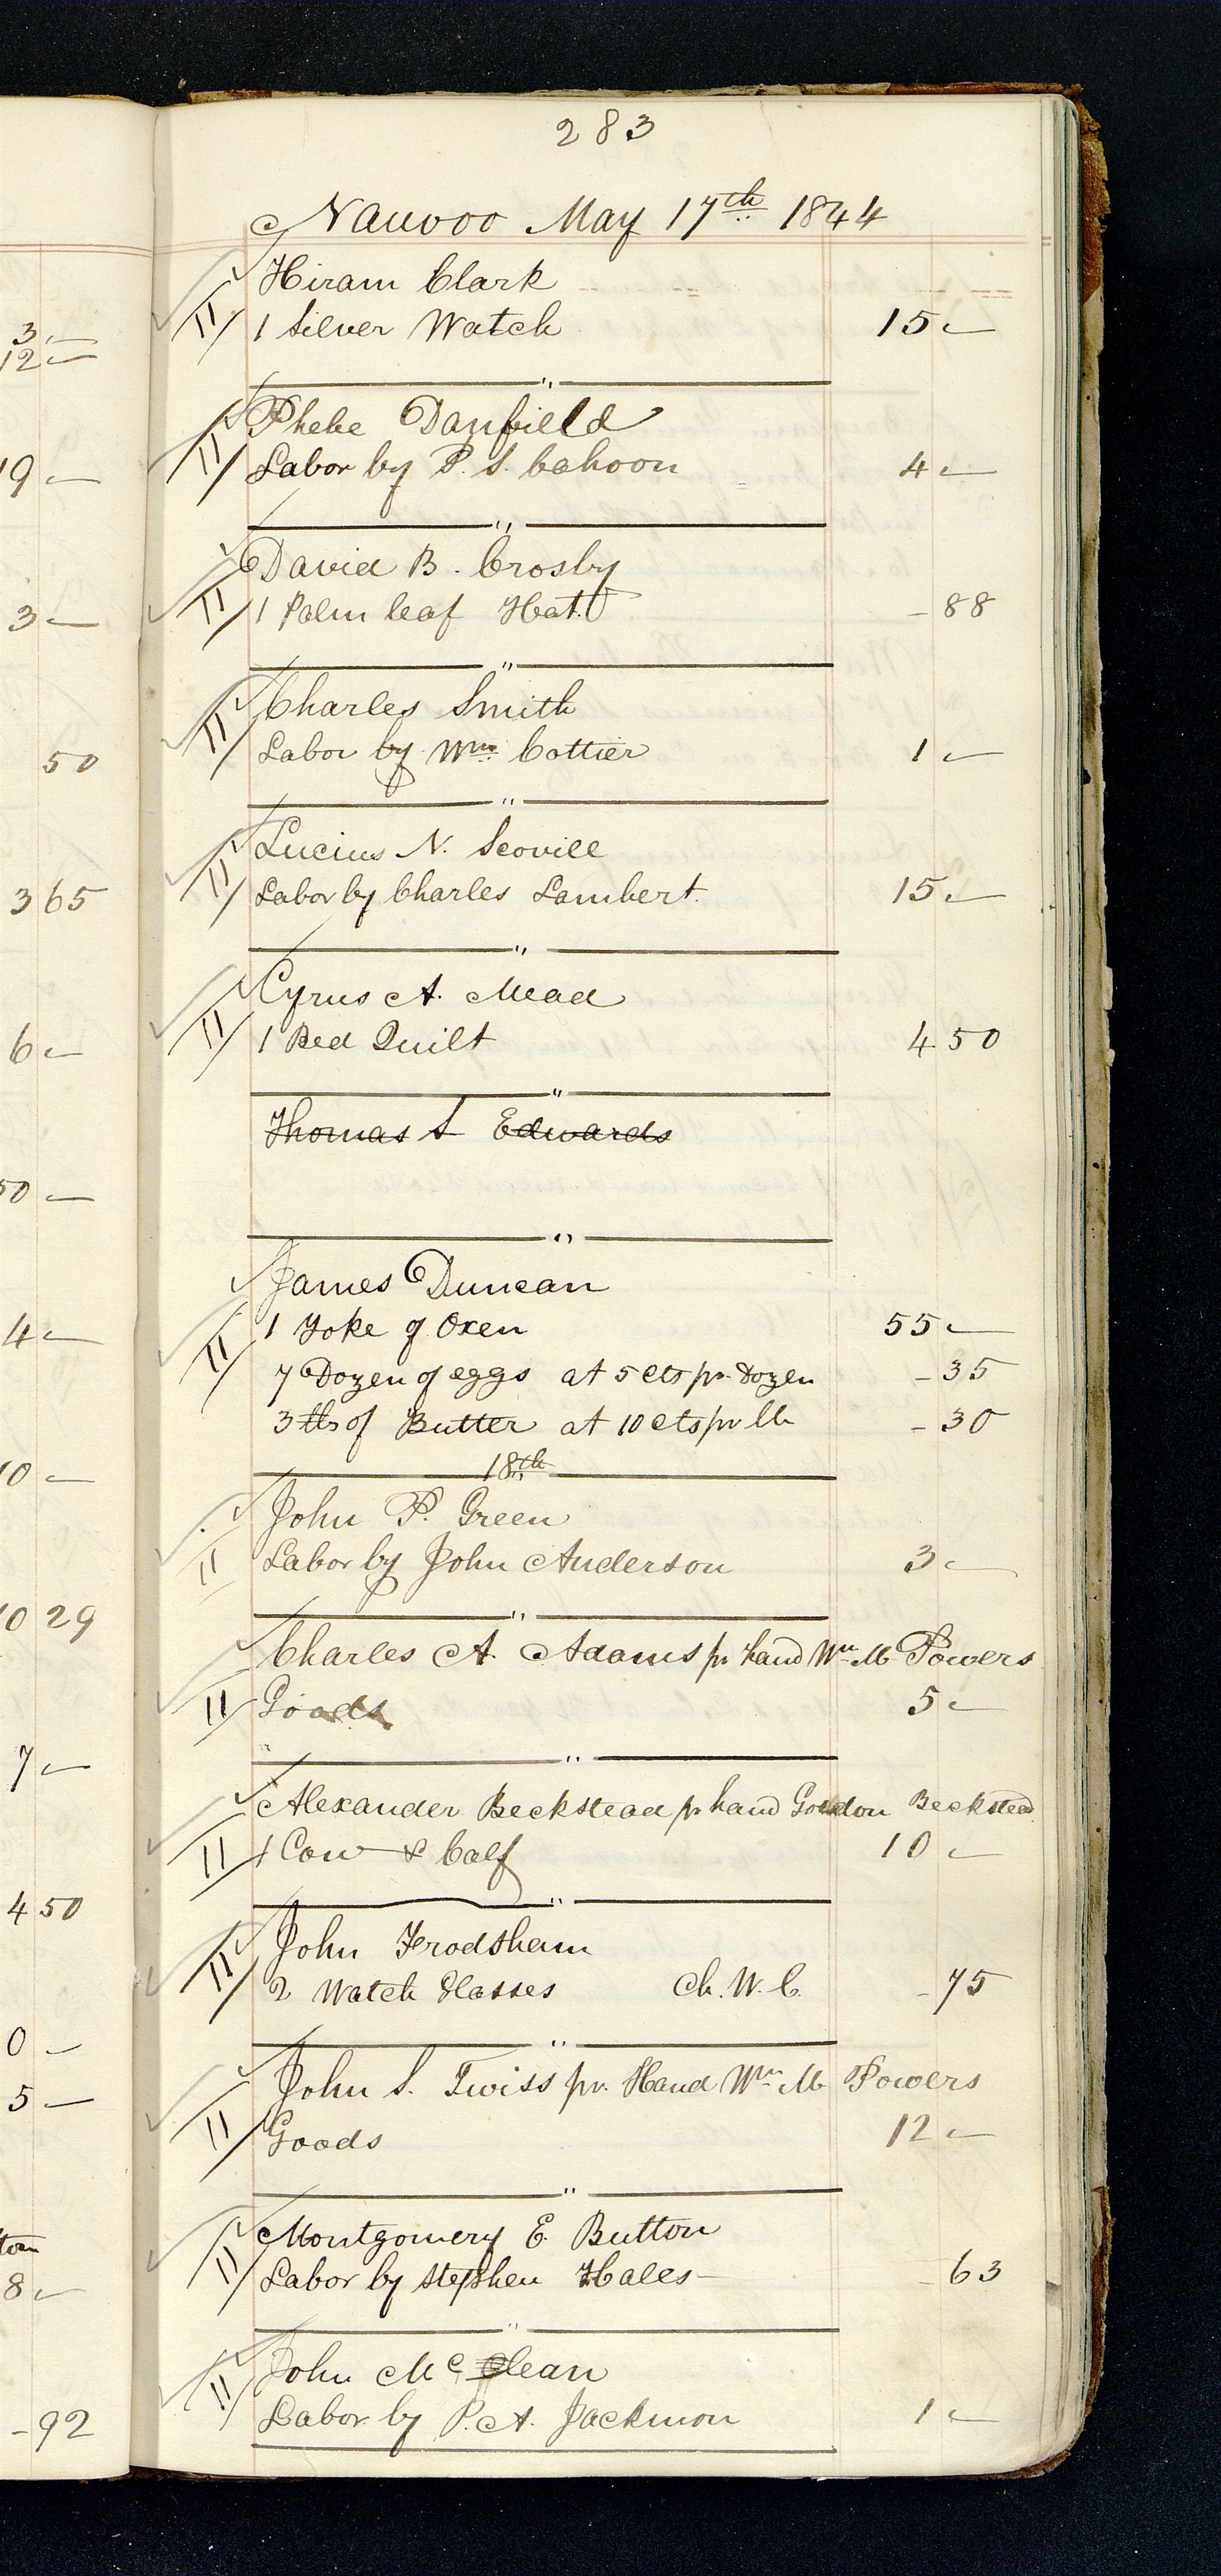 283
Nauvoo May 17th 1844
Hiram Clark
11 1 Silver Watch 15 —
"
Phebe Danfield
11 Labor by P. S. Cahoon 4 —
"
David B. Crosby
11 1 Palm leaf Hat. - 88
"
Charles Smith
11 Labor by Wm Cottier 1 —
"
Lucius N. Scovill
11 Labor by Charles Lambert. 15 —
"
Cyrus A. Mead
11 1 Bed Quilt 4 50
"
Thomas S Edwards
"
James Duncan
11 1 Yoke of Oxen 55 —
7 Dozen of eggs at 5 cts pr Dozen - 35
3 lbs of Butter at 10 cts pr lb - 30
18th
John P. Green
11 Labor by John Anderson 3 —
"
Charles A. Adams pr hand Wm M Powers
11 Goods 5 —
"
Alexander Beckstead pr hand Gordon Beckstead
11 1 Cow & Calf 10 —
"
John Frodsham
11 2 Watch Glasses Ch. W. C. - 75
"
John S. Twiss pr. Hand Wm M Powers
11 Goods 12 —
"
Montgomery E. Button
11 Labor by Stephen Hales - 63
"
John Mc Clean
11 Labor by P. A. Jackmon 1 —
3 —
12 —
19 —
3 —
50
3 65
6 —
50 —
4 —
10 —
10 29
7 —
4 50
0 —
5 —
8 —
- 92